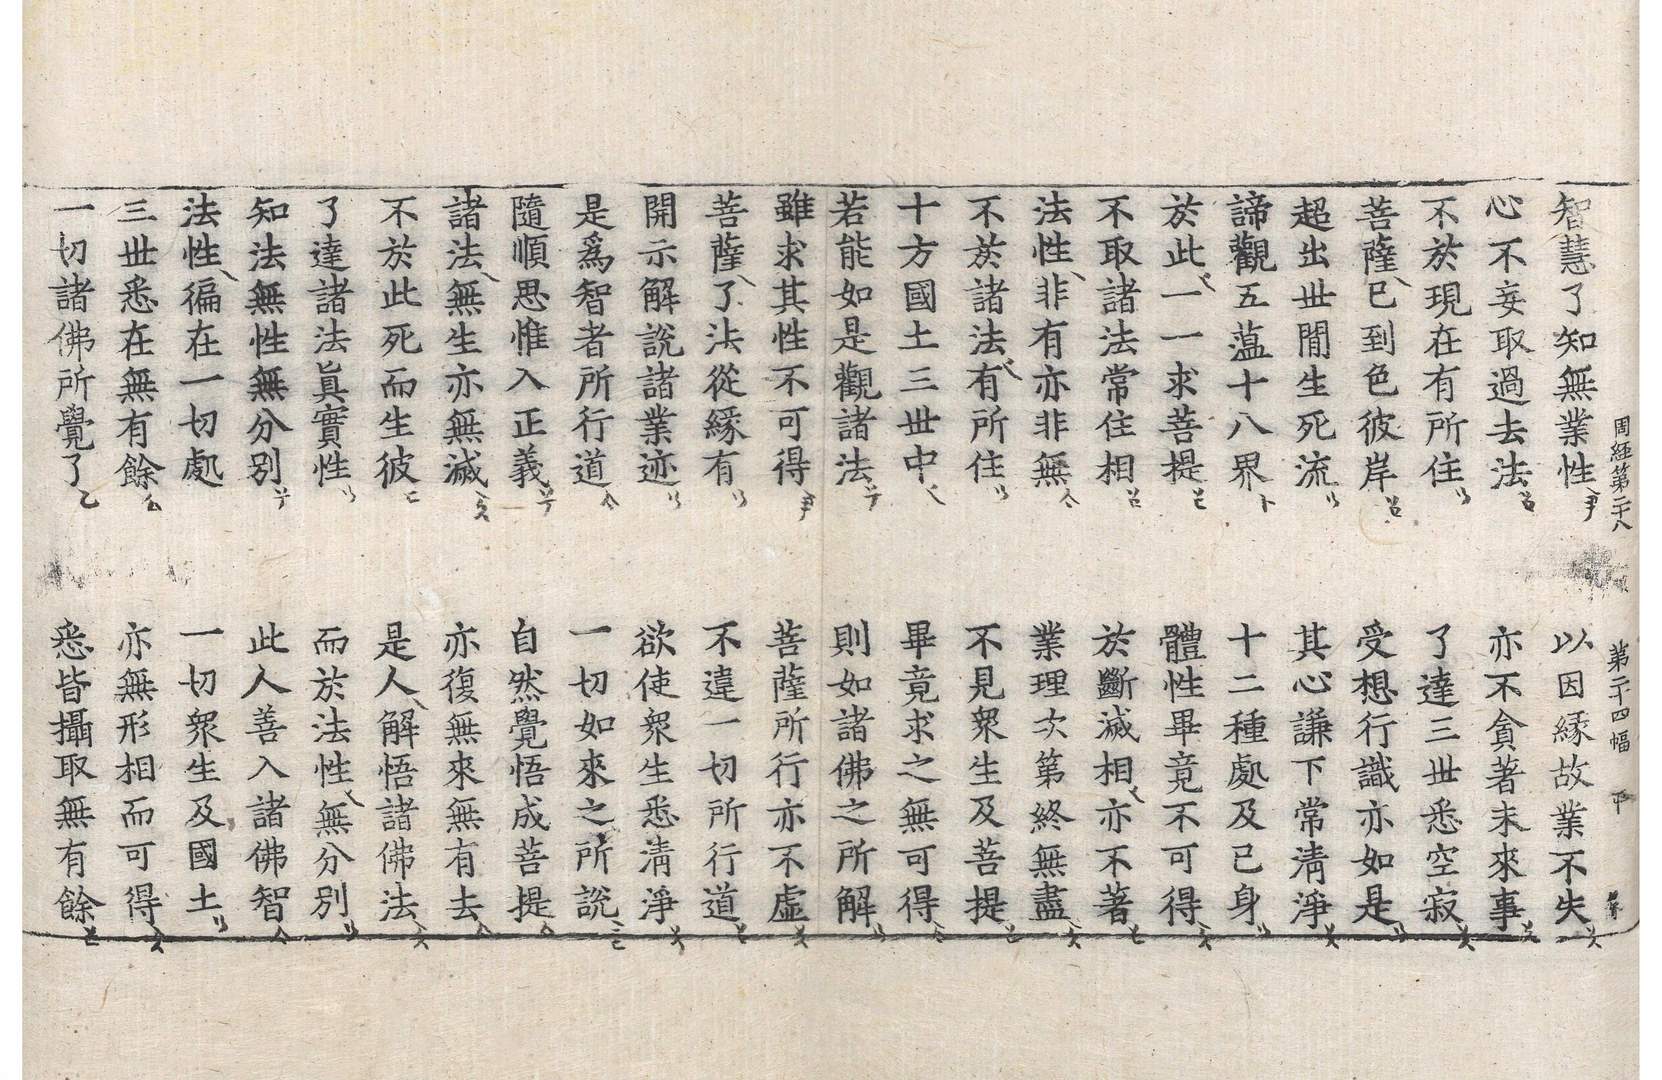 周經第二十八 第二十四幅
智慧了知無業性 以因緣故業不失
心不妄取過去法 亦不貪著未來事
不於現在有所住 了達三世悉空寂
菩薩已到色彼岸 受想行識亦如是
超出世間生死流 其心謙下常淸淨
諦觀五蘊十八界 十二種處及己身
於此一一求菩提 體性畢竟不可得
不取諸法常住相 於斷滅相亦不著
法性非有亦非無 業理次第終無盡
不於諸法有所住 不見衆生及菩提
十方國土三世中 畢竟求之無可得
若能如是觀諸法 則如諸佛之所解
雖求其性不可得 菩薩所行亦不虛
菩薩了法從緣有 不違一切所行道
開示解說諸業迹 欲使衆生悉淸淨
是爲智者所行道 一切如來之所說
隨順思惟入正義 自然覺悟成菩提
諸法無生亦無滅 亦復無來無有去
不於此死而生彼 是人解悟諸佛法
了達諸法眞實性 而於法性無分別
知法無性無分別 此人善入諸佛智
法性徧在一切處 一切衆生及國土
三世悉在無有餘 亦無形相而可得
一切諸佛所覺了 悉皆攝取無有餘